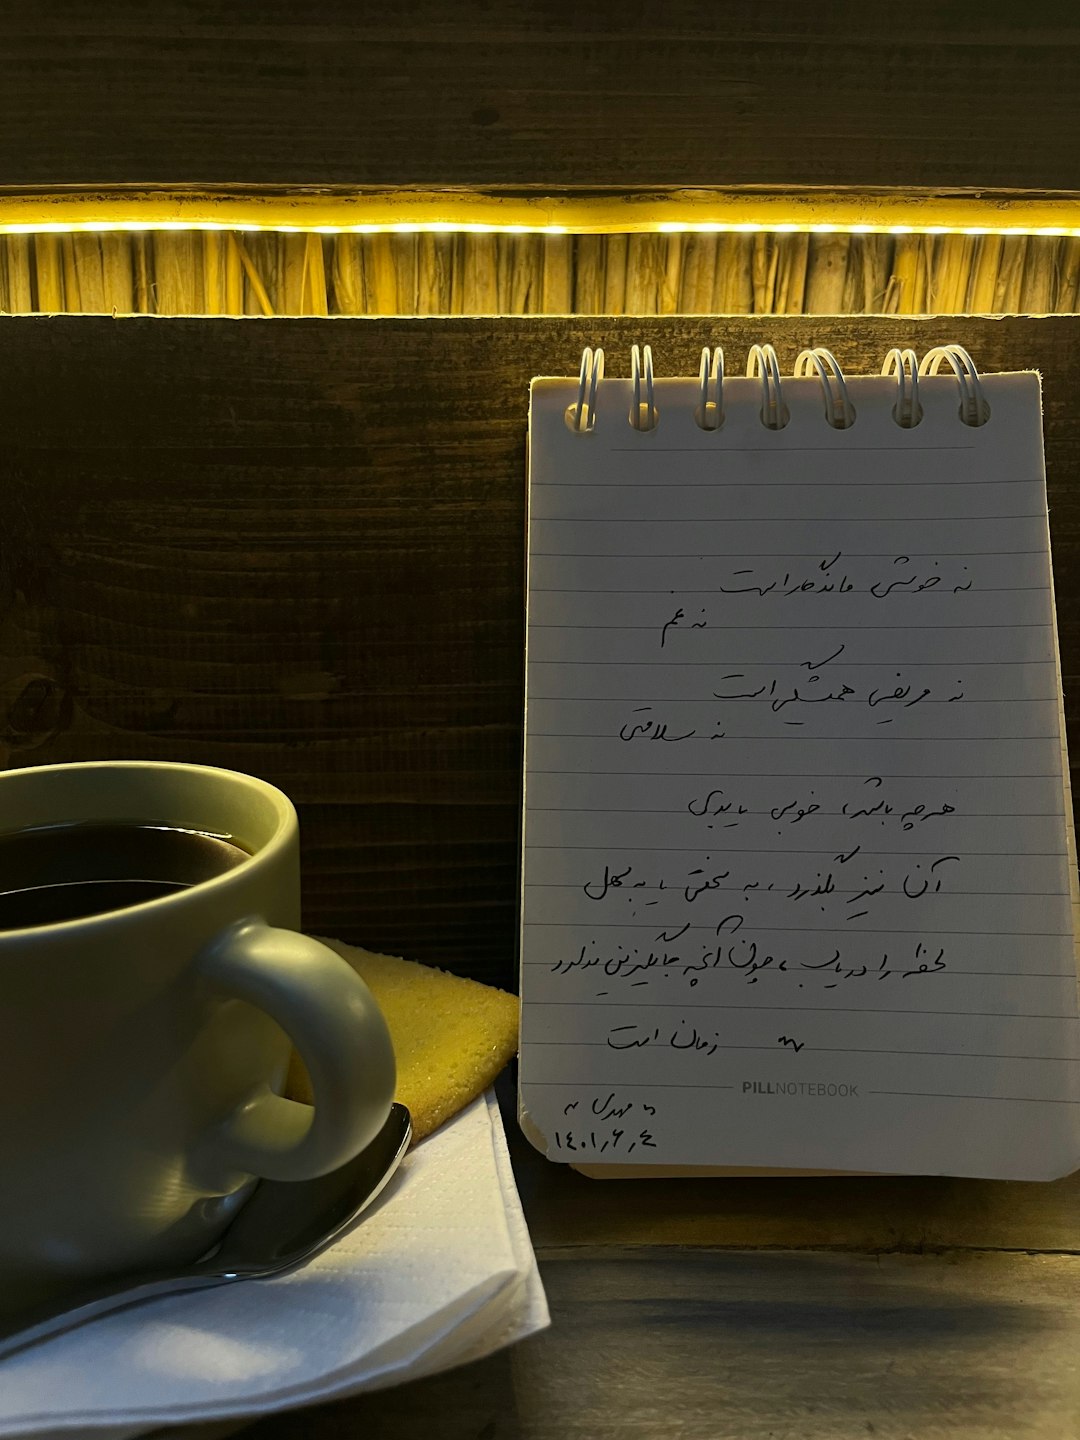 نه خوشی ماندگار است
نه غم
نه مریضی همیشگی است
نه سلامتی
هرچه باشد، خوبی یا بدی
آن نیز بگذرد، به سختی یا به سهل
لحظه را دریاب، چون آنچه جایگزینی ندارد
زمان است
PILLNOTEBOOK
مهدی
۱۴۰۱,۶,۴